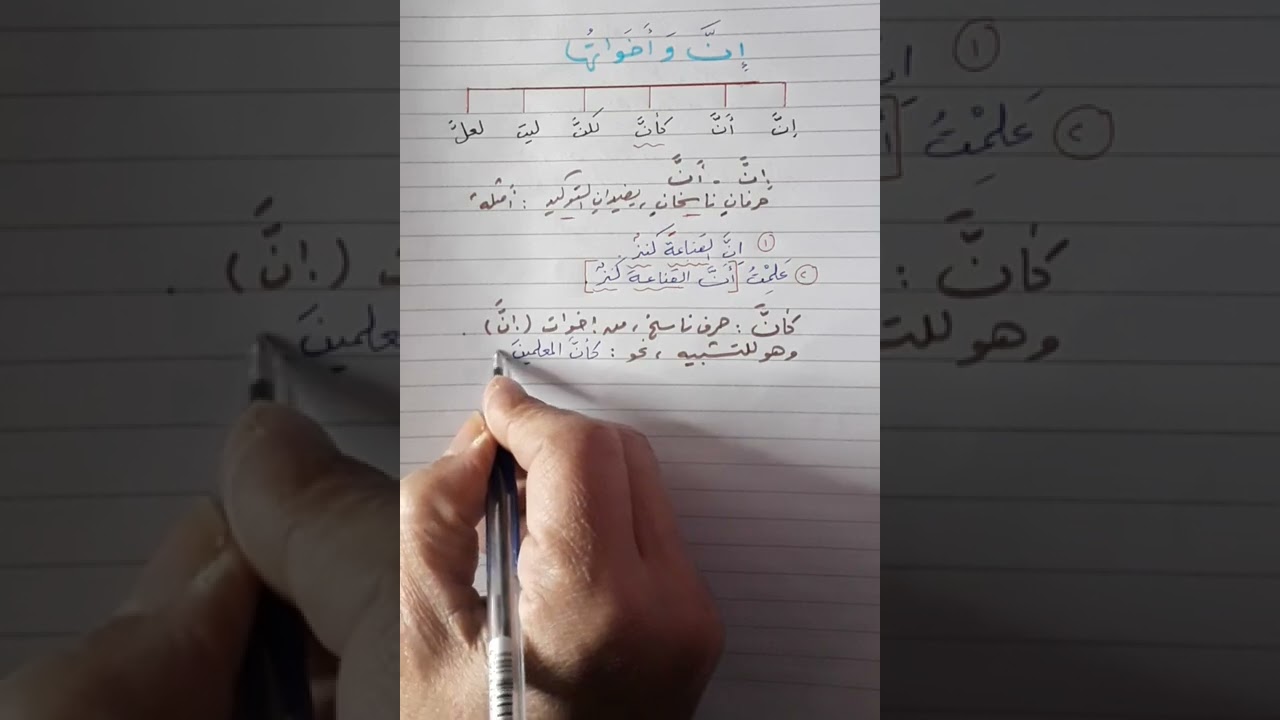 إنَّ وَأَخَوَاتُها
إنَّ أنَّ كأنَّ لكنَّ ليت لعلَّ
إنَّ - أنَّ
حرفانِ ناسخانِ، يفيدانِ التوكيد : أمثلة
١ انَّ القناعةَ كنزٌ
٢ عَلِمْتُ أنَّ القناعةَ كنزٌ .
كأنَّ : حرف ناسخ، من اخوات (إنَّ) .
وهو للتشبيه، نحو : كأنَّ المعلمينَ